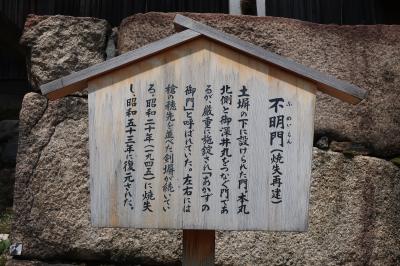 ふめいもん
不明門（焼失再建）
土塀の下に設けられた門。本丸
北側と御深井丸をつなぐ門であ
るが、厳重に施錠され「あかずの
御門」と呼ばれていた。左右には
槍の穂先を並べた剣塀が続いてい
る。昭和二十年（一九四五）に焼失
し、昭和五十三年に復元された。